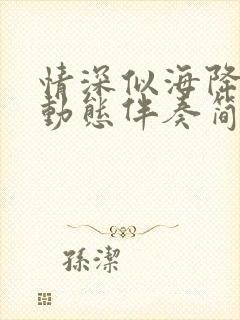 情深似海降
動態伴奏简
孫潔